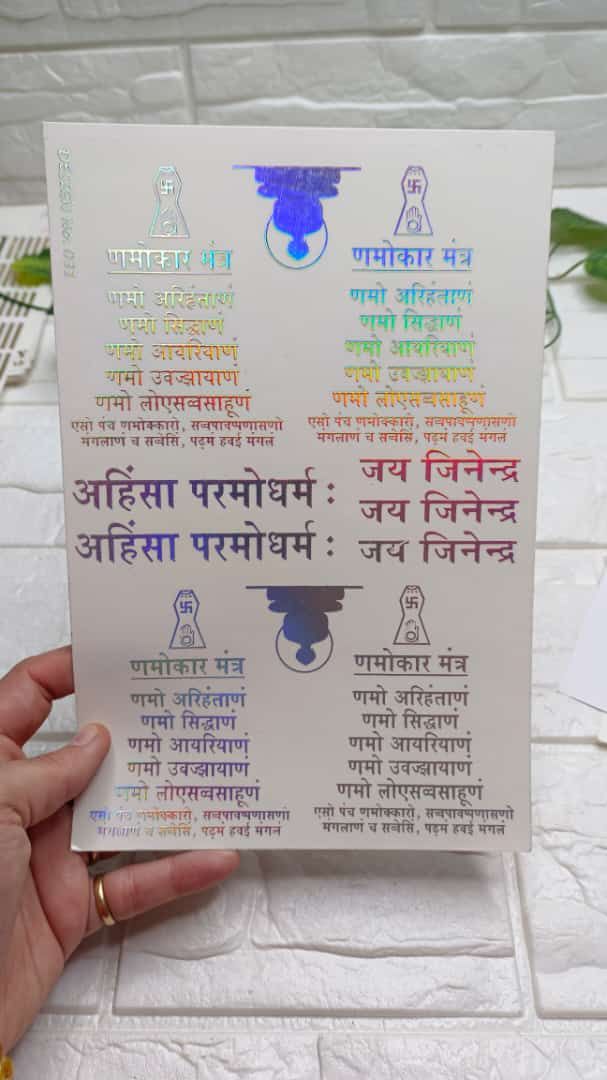 णमोकार मंत्र
णमो अरिहंताणं
णमो सिद्धाणं
णमो आयरियाणं
णमो उवज्झायाणं
णमो लोएसव्वसाहूणं
एसो पंच णमोक्कारो, सव्वपावप्पणासणो
मंगलाणं च सव्वेसिं, पढ़मं हवई मंगलं
णमोकार मंत्र
णमो अरिहंताणं
णमो सिद्धाणं
णमो आयरियाणं
णमो उवज्झायाणं
णमो लोएसव्वसाहूणं
एसो पंच णमोक्कारो, सव्वपावप्पणासणो
मंगलाणं च सव्वेसिं, पढ़मं हवई मंगलं
अहिंसा परमोधर्म :
अहिंसा परमोधर्म :
जय जिनेन्द्र
जय जिनेन्द्र
जय जिनेन्द्र
णमोकार मंत्र
णमो अरिहंताणं
णमो सिद्धाणं
णमो आयरियाणं
णमो उवज्झायाणं
णमो लोएसव्वसाहूणं
एसो पंच णमोक्कारो, सव्वपावप्पणासणो
मंगलाणं च सव्वेसिं, पढ़मं हवई मंगलं
णमोकार मंत्र
णमो अरिहंताणं
णमो सिद्धाणं
णमो आयरियाणं
णमो उवज्झायाणं
णमो लोएसव्वसाहूणं
एसो पंच णमोक्कारो, सव्वपावप्पणासणो
मंगलाणं च सव्वेसिं, पढ़मं हवई मंगलं